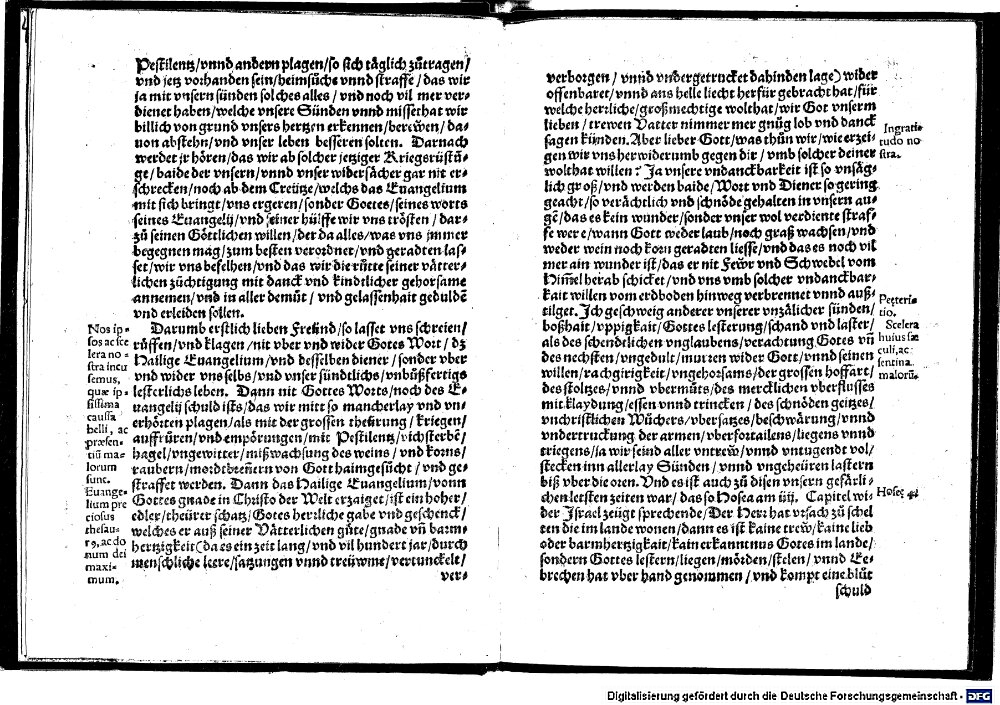 Pestilentz/vnnd andern plagen/so sich täglich zůtragen/
vnd jetz vorhanden sein/heimsůche vnnd straffe/das wir
ja mit vnsern sünden solches alles/vnd noch vil mer ver-
dienet haben/welche vnsere Sünden vnnd missethat wir
billich von grund vnsers hertzen erkennen/berewen/da-
uon abstehn/vnd vnser leben besseren solten. Darnach
werdet jr hören/das wir ab solcher jetziger Kriegsrüstů-
ge/baide der vnsern/vnnd vnser widersächer gar nit er-
schrecken/noch ab dem Creütze/welchs das Euangelium
mit sich bringt/vns ergeren/sonder Gottes/seines worts
seines Euangelij/vnd seiner hülffe wir vns trösten/dar-
zů seinen Göttlichen willen/der da alles/was vns jmmer
begegnen mag/zum besten verordnet/vnd geradten las-
set/wir vns befelhen/vnd das wir die rütte seiner vätter-
lichen züchtigung mit danck vnd kindtlicher gehorsame
annemen/vnd in aller demůt/vnd gelassenhait geduldē
vnd erleiden sollen.
Darumb erstlich lieben Freünd/so lasset vns schreien/
rüffen/vnd klagen/nit vber vnd wider Gottes Wort/dz
Hailige Euangelium/vnd desselben diener/sonder vber
vnd wider vns selbs/vnd vnser sündtlichs/vnbůßfertigs
lesterlichs leben. Dann nit Gottes Worts/noch des E-
uangelij schuld ists/das wir mitt so mancherlay vnd vn-
erhörten plagen/als mit der grossen theürung/kriegen/
auffrüren/vnd empörungen/mit Pestilentz/vichsterbē/
hagel/vngewitter/mißwachsung des weins/vnd korns/
raubern/mordtbreñern von Gott haimgesücht/vnd ge-
straffet werden. Dann das Hailige Euangelium/vonn
Gottes gnade in Christo der Welt erzaiget/ist ein hoher/
edler/theürer schatz/Gottes herzliche gabe vnd geschenck/
welches er auß seiner Vätterlichen güte/gnade vñ barm-
hertzigkeit (da es ein zeit lang/vnd vil hundert jar/durch
menschliche leere/satzungen vnnd treüwme/vertunckelt/
ver-
Nos ip-
sos ac sce
lera no-
stra incu
semus,
quæ ip-
sissima
caussa
belli, ac
præsen-
tiū ma-
lorum
sunt.
Euange-
lium pre
ciosus
thesau-
rꝰ, ac do
num dei
maxi-
mum.
verborgen/vnnd vndergetrucket dahinden lage) wider
offenbaret/vnnd ans helle liecht herfür gebracht hat/für
welche herzliche/großmechtige wolthat/wir Got vnserm
lieben/trewen Vatter nimmer mer gnůg lob vnd danck
sagen künden. Aber lieber Gott/was thůn wir/wie erzei-
gen wir vns herwiderumb gegen dir/vmb solcher deiner
wolthat willen? Ja vnsere vndanckbarkeit ist so vnsäg-
lich groß/vnd werden baide/Wort vnd Diener so gering
geacht/so verächtlich vnd schnöde gehalten in vnsern au-
gē/das es kein wunder/sonder vnser wol verdiente straf-
fe were/wann Gott weder laub/noch graß wachsen/vnd
weder wein noch korn geradten liesse/vnd das es noch vil
mer ain wunder ist/das er nit Fewr vnd Schwebel vom
Himel herab schicket/vnd vns vmb solcher vndanckbar-
kait willen vom erdboden hinweg verbrennet vnnd auß-
tilget. Jch geschweig anderer vnserer vnzälicher sünden/
boßhait/vppigkait/Gottes lesterung/schand vnd laster/
als des schendtlichen vnglaubens/verachtung Gottes vñ
des nechsten/vngedult/murzen wider Gott/vnnd seinen
willen/rachgirigkeit/vngehorsams/der grossen hoffart/
des stoltzes/vnnd vbermůts/des mercklichen vberflusses
mit klaydung/essen vnnd trincken/des schnöden geitzes/
vnchristlichen Wüchers/vbersatzes/beschwärung/vnnd
vndertruckung der armen/vberfortailens/liegens vnnd
triegens/ja wir seind aller vntrew/vnnd vntugendt vol/
stecken inn allerlay Sünden/vnnd vngeheüren lastern
biß vber die oren. Vnd es ist auch zů disen vnsern gefärli-
chen letsten zeiten war/das so Hosea am iiij. Capitel wi-
der Jsrael zeügt sprechende/Der Herz hat vrsach zů schel
ten die im lande wonen/dann es ist kaine trew/kaine lieb
oder barmhertzigkait/kain erkanntnus Gotes im lande/
sondern Gottes lestern/liegen/mörden/stelen/vnnd Ee-
brechen hat vber hand genommen/vnd kompt eine blůt
schuld
Ingrati-
tudo no
stra.
Petteri-
tio.
Scelera
huius sæ
culi, ac
sentina
malorū.
Hoseę 4
Digitalisierung gefördert durch die Deutsche Forschungsgemeinschaft - DFG